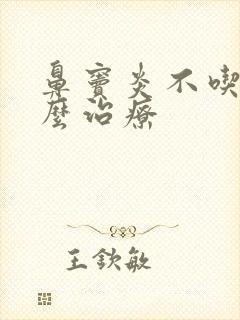 鼻竇炎不喫
麼治療
王欽敏